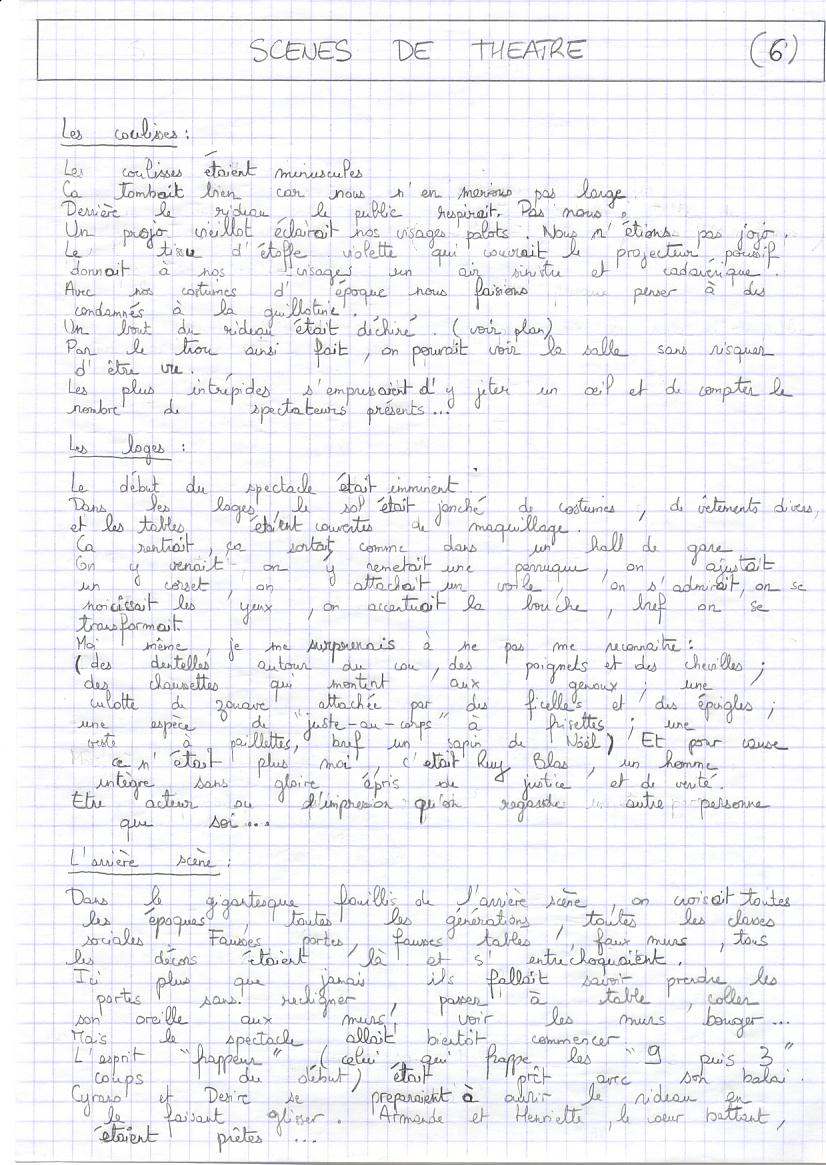 SCENES DE THEATRE (6)
Les coulisses :
Les coulisses étaient minuscules
Ca tombait bien car nous n'en menions pas large.
Derrière le rideau le public respirait. Pas nous.
Un projo vieillot éclairait nos visages palots. Nous n'étions pas jojo.
Le tissu d'étoffe violette qui couvrait le projecteur poussif
donnait à nos visages un air sinistre et cadavérique.
Avec nos costumes d'époque nous faisions penser à des
condamnés à la guillotine.
Un bout du rideau était déchiré. (voir plan)
Par le trou ainsi fait, on pouvait voir la salle sans risquer
d'être vu.
Les plus intrépides s'empressaient d'y jeter un œil et de compter le
nombre de spectateurs présents...
Les loges :
Le début du spectacle était imminent.
Dans les loges, le sol était jonché de costumes, de vêtements divers,
et les tables étaient couvertes de maquillage.
Ca rentrait, ça sortait, comme dans un hall de gare
On y venait, on y remettait une perruque, on ajustait
un corset, on attachait un voile, on s'admirait, on se
noircissait les yeux, on accentuait la bouche, bref on se
transformait.
Moi même, je me surprenais à ne pas me reconnaitre :
(des dentelles autour du cou, des poignets et des chevilles ;
des chaussettes qui montent aux genoux ; une
culotte de zouave attachée par des ficelles et des épingles ;
une espèce de "juste-au-corps" à frisettes ; une
veste à paillettes, bref un sapin de Nöel) Et pour cause
ce n'était plus moi, c'était Ruy Blas, un homme
intègre sans gloire épris de justice et de verité.
Etre acteur ou l'impression qu'on regarde autre personne
que soi...
L'arrière scène :
Dans le gigantesque fouillis de l'arrière scène, on croisait toutes
les époques, toutes les générations, toutes les classes
sociales. Fausses portes, fausses tables, faux murs, tous
les décors étaient là et s'entrechoquaient.
Ici plus que jamais ils fallait savoir prendre les
portes sans rechigner, passer à table, coller
son oreille aux murs, voir les murs bouger...
Mais le spectacle allait bientôt commencer.
L'esprit "frappeur" (celui qui frappe les "9 puis 3"
coups du début) était prêt avec son balai.
Cyrano et Desire se préparaient à ouvrir le rideau en
le faisant glisser. Armande et Henriette, le coeur battant,
étaient prêtes...